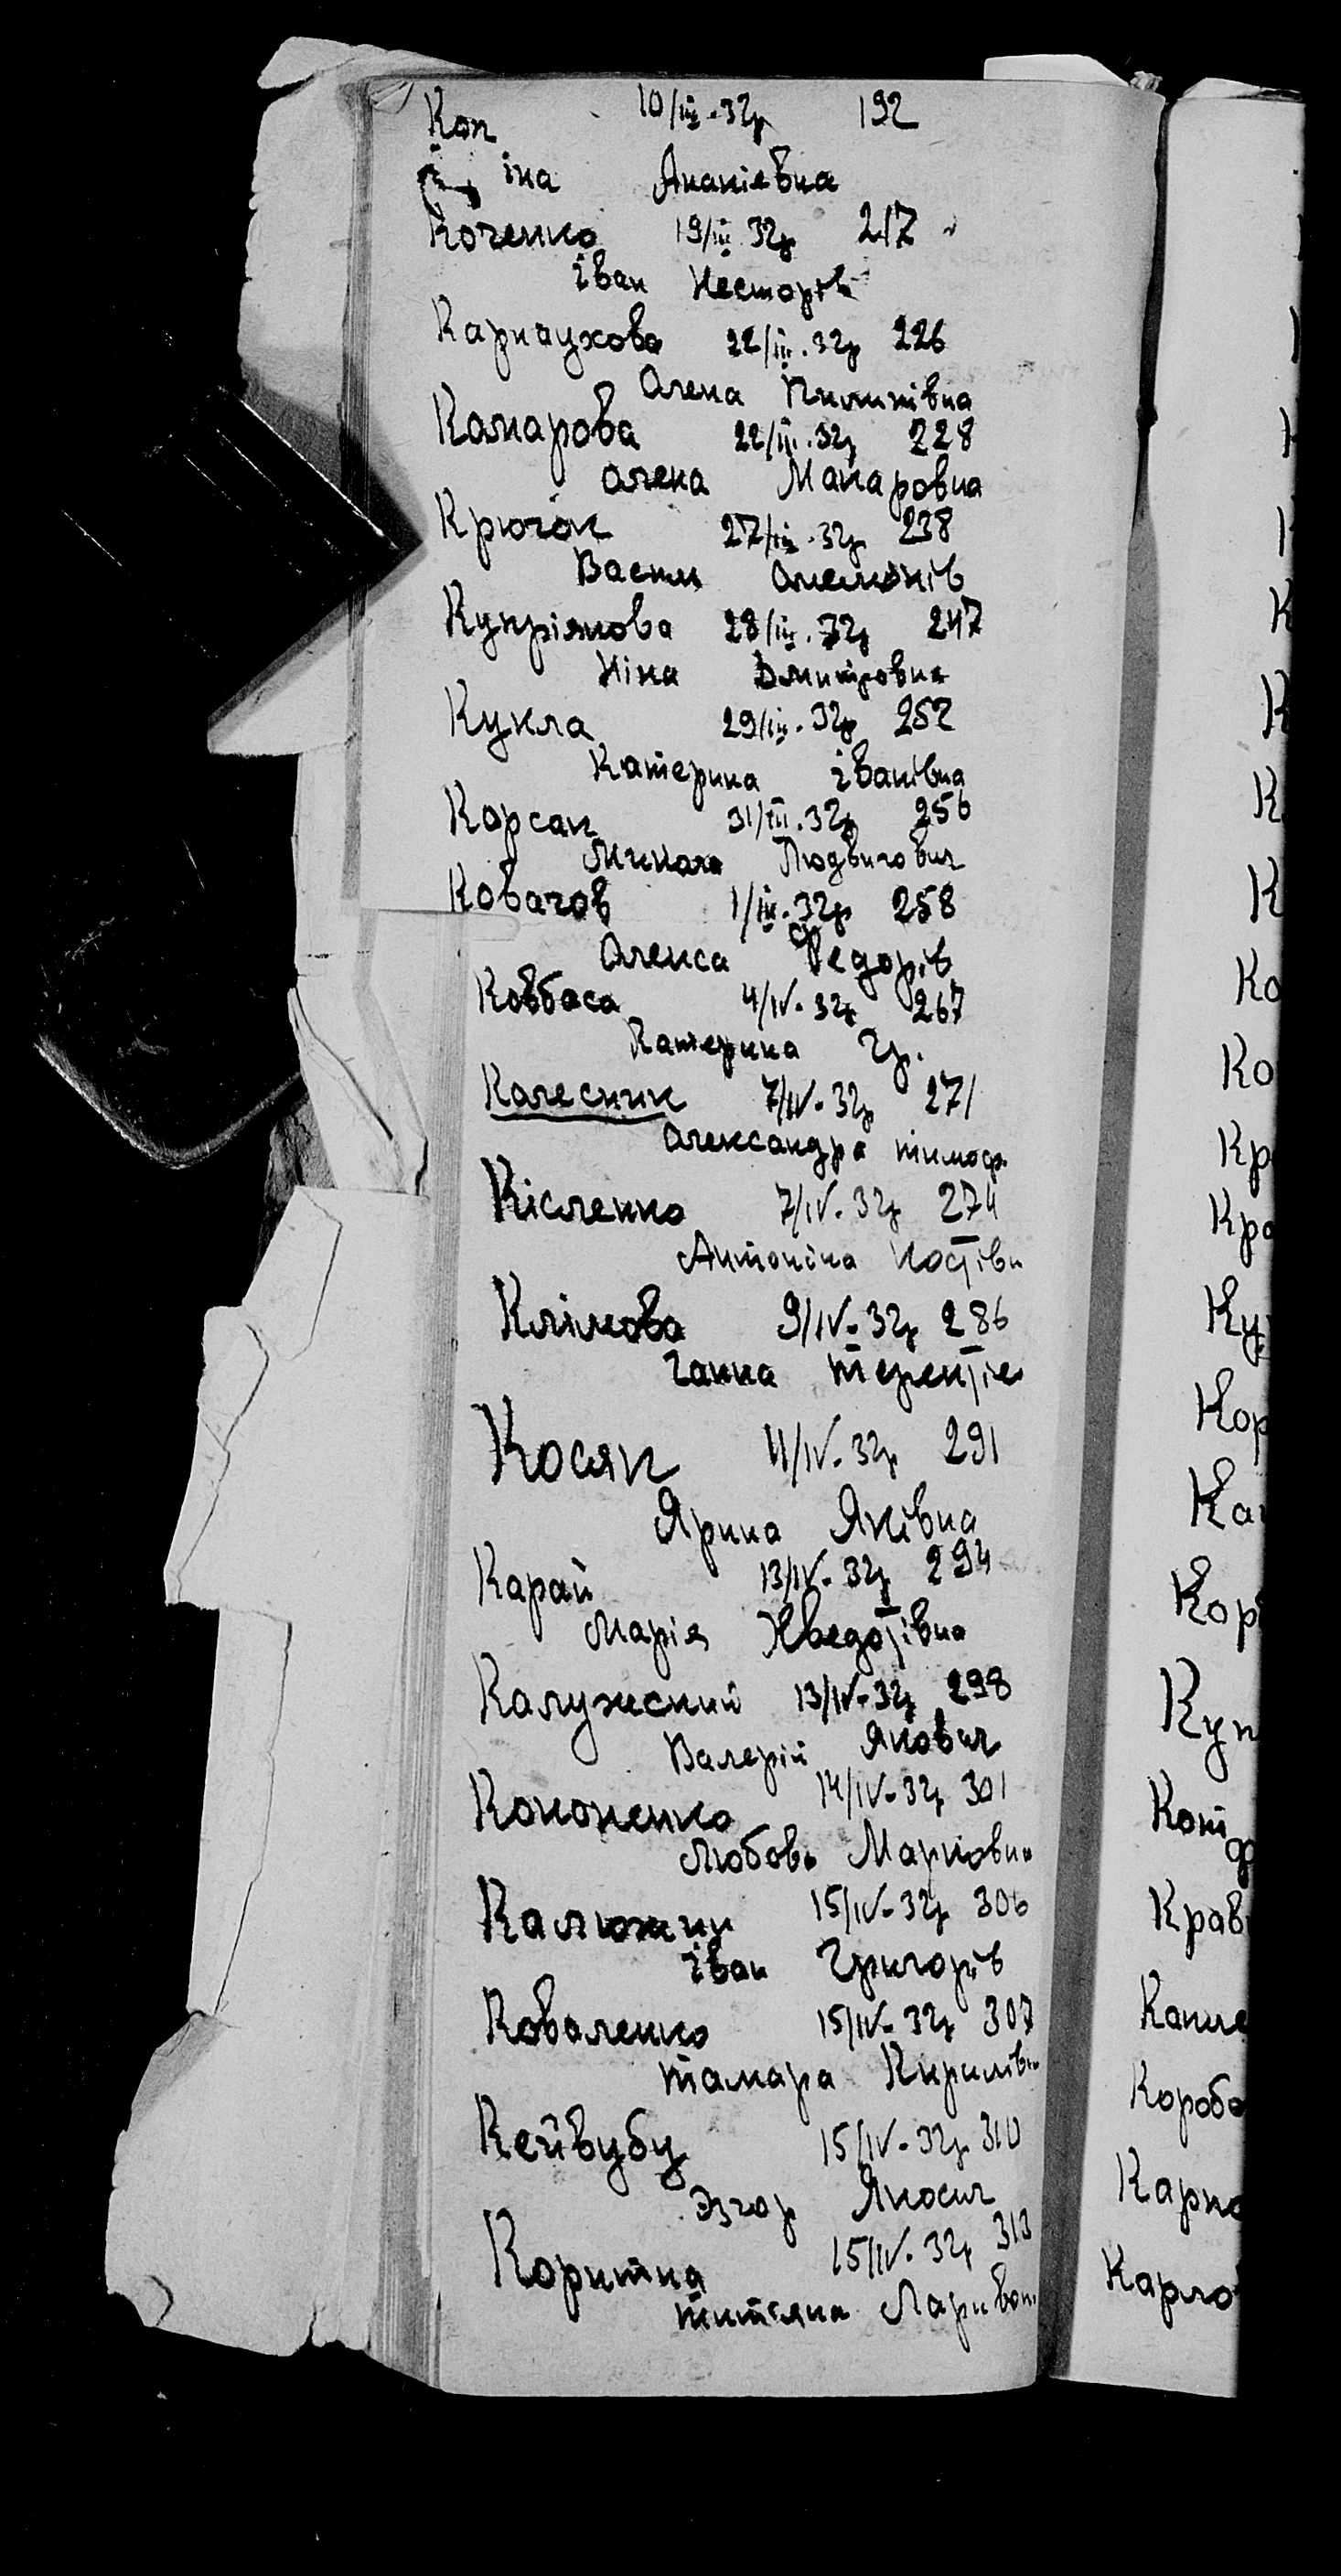 Коп 10/III.32р 192
іна Ананієвна
Коченко 19/III.32р 217
Іван Несторів
Карнаухова 22/III.32р 226
Олена Пилипівна
Комарова 22/III.32р 228
Олена Макаровна
Крючок 27/III.32р 238
Василь Омелянів
Купріянова 28/III.32р 247
Ніна Дмитровна
Кукла 29/III.32р 252
Катерина Іванівна
Корсак 31/III.32р 256
Микола Людвигович
Ковачов 1/IV.32р 258
Олекса Федорів
Ковбаса 4/IV.32р 267
Катерина Гр.
Колесник 7/IV.32р 271
Олександра Тимоф.
Кісленко 7/IV.32р 274
Антоніна Костівн
Клімова 9/IV.32р 286
Ганна Терентіє
Косяк 11/IV.32р 291
Ярина Яківна
Карай 13/IV.32р 294
Марія Хведотівна
Калужский 13/IV.32р 298
Валерій Якович
Кононенко 14/IV.32р 301
Любовь Марковна
Калюжний 15/IV.32р 306
Іван Григорів
Коваленко 15/IV.32р 307
Тамара Кирилівн
Кейвубу 15/IV.32р 310
Эдгар
Коритна 15/IV.32р 313
Ко
Ко
Кр
Кор
Кор
Куп
Крав
Коробо
Карпо
Карло